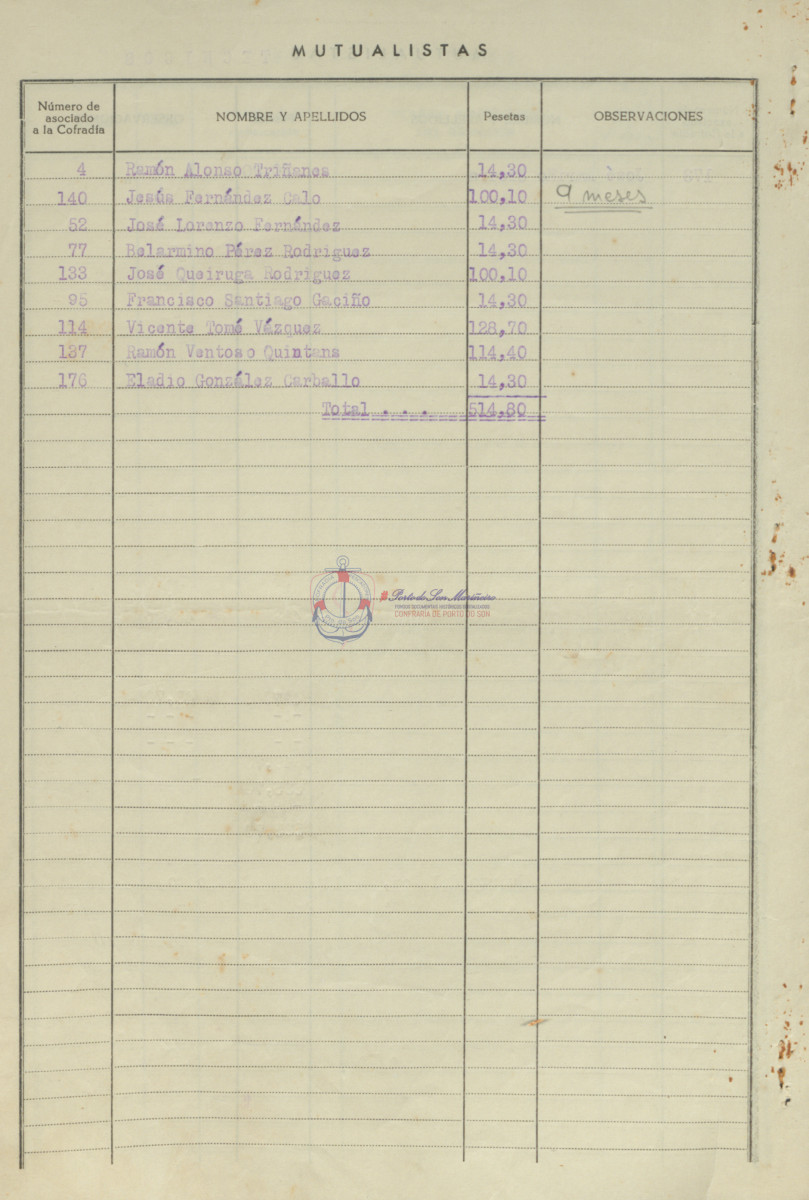 MUTUALISTAS
Número de asociado a la Cofradía NOMBRE Y APELLIDOS Pesetas OBSERVACIONES
4 Ramón Alonso Triñanes 14,30
140 Jesús Fernández Calo 100,10 9 meses
52 José Lorenzo Fernández 14,30
77 Belarmino Pérez Rodriguez 14,30
133 José Queiruga Rodríguez 100,10
95 Francisco Santiago Gaciño 14,30
114 Vicente Tomé Vázquez 128,70
137 Ramón Ventoso Quintans 114,40
176 Eladio González Carballo 14,30
Total . . . 514,80
Porto do Son Mariñeiro
CONFRARÍA DE PORTO DO SON